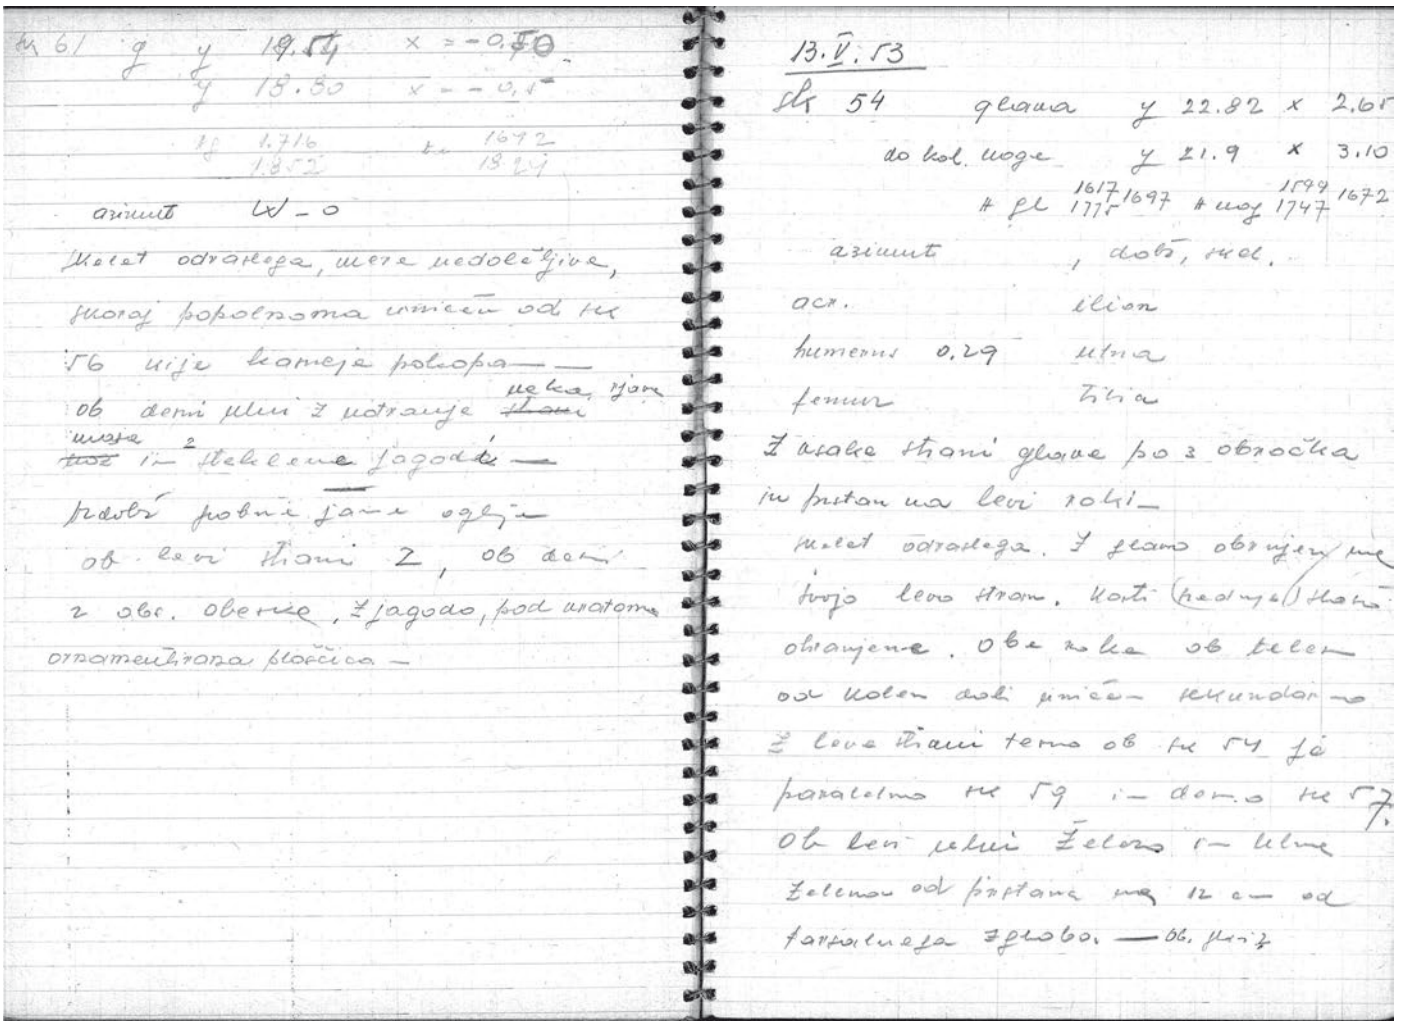 sk 61 g y 19.54 x = -0.50
y 18.80 x = -0.5
tg 1.716 1692
1.852 1824
azimut W-O
skelet odraslega, mere nedoločljive,
skoraj popolnoma uničen od sk
56 ki je kasneje pokopan —
neka rjava
ob desni ulni z notranje strani
masa
in 2 steklene jagode —
jame oglje
ob levi strani 2, ob desni
2 obs. obeska, z jagodo, pod vratom
ornamentirana ploščica —
13.V.53
sk 54 glava y 22.82 x 2.65
do kol. noge y 21.9 x 3.10
# gl 1617 1775 1697 # nog 1599 1747 1672
azimut , dolž, skel.
acr. ilion
humerus 0.29 ulna
femur tibia
Z vsake strani glave po 3 obročka
in prstan na levi roki —
skelet odraslega. Z glavo obrnjen na
svojo levo stran. Kosti (srednje) slabo
ohranjene. Obe roke ob telesu
od kolen doli uničen sekundarno
Z leve strani tesno ob sk 54 je
paralelno sk 59 in desno sk 57.
Ob levi ulni železo in ulna
zelena od prstana na 12 cm od
tarsalnega zgloba. —